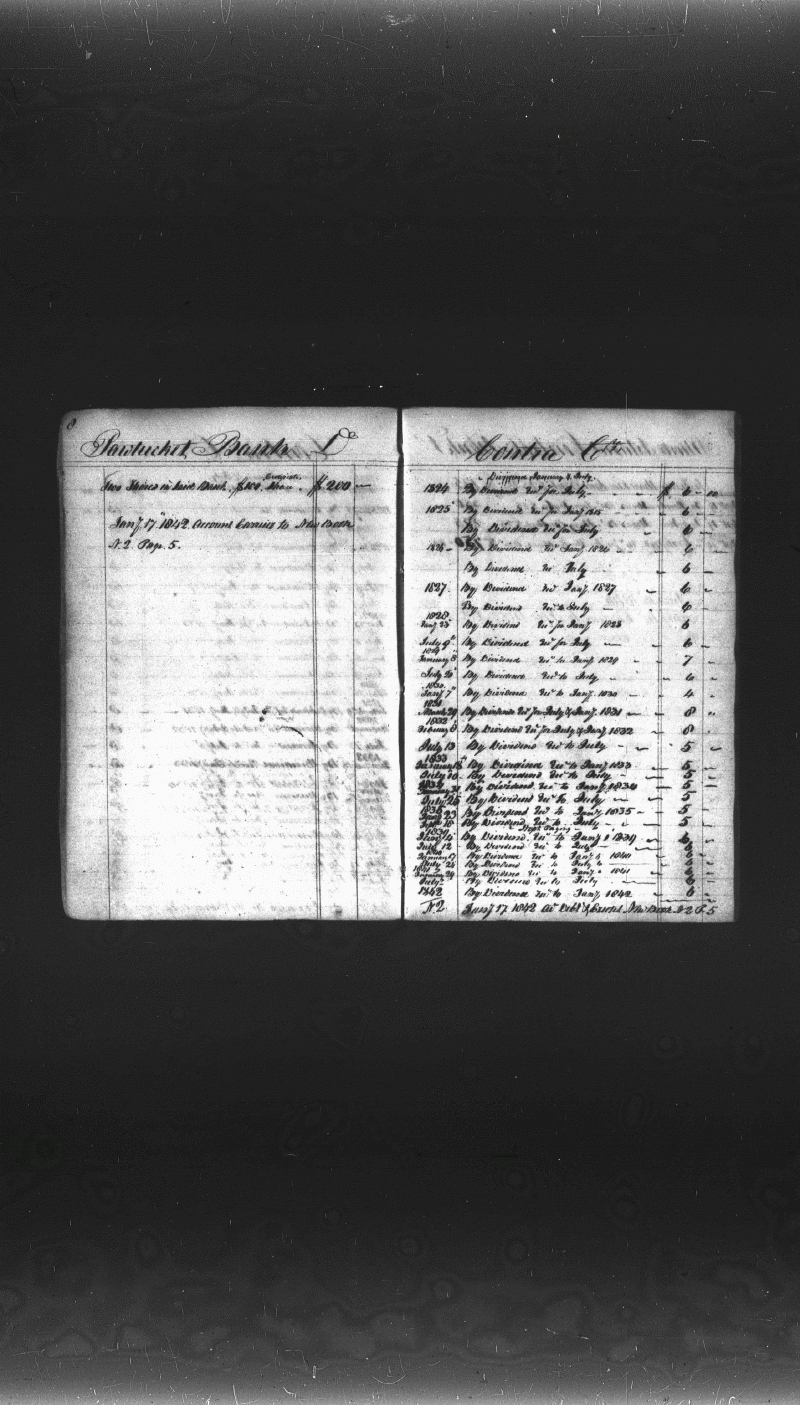 8
Pawtucket Bank Dr
Two Shares in said Bank. $100. Share. $200 —
Jany 17th 1842. Account Carried to New Book
N.2. Page 5.
Contra Cr
January & July.
1824 By Dividend Recd for July — $ 6 - 10
1825 By Dividend Recd for Jany 1825 — 6
By Dividend Recd for July 6
1826 — By Dividend Recd Jany 1826 — 6
By Dividend Recd July 6
1827 By Dividend Recd Jany 1827 — 6
By Dividend Recd to July — 6
1828
Jany 23d By Dividend Recd for Jany 1828 6
July 9th By Dividend Recd for July — 6
1829
January 8th By Dividend Recd to Jany 1829 — 7
July 20th By Dividend Recd to July — 6
1830
Jany 7th By Dividend Recd to Jany 1830 — 4
1831
March 29 By Dividend Recd for July & Jany 1831 — 8
1832
February 8 By Dividend Recd for July & Jany 1832 — 8
July 13 By Dividend Recd to July — 5
1833
January 18 By Dividend Recd to Jany 1833 — 5
July 10 By Dividend Recd to July — 5
1834
January By Dividend Recd to Jany 1834 5
July 25 By Dividend Recd to July — 5
1835
Jany 23 By Dividend Recd to Jany 1835 — 5
By Dividend Recd to July — 5
Stopt Paying
1839
By Dividend Recd to Jany 1839 — 6
July 12 By Dividend Recd to July
1840
January 17 By Dividend Recd to Jany 1840
July 24 By Dividend Recd to July
1841
January 29 By Dividend Recd to Jany 1841
July By Dividend Recd to July 6
1842 By Dividend Recd to Jany 1842 6
N.2 Jany 17 1842 New Book N 2 P. 5